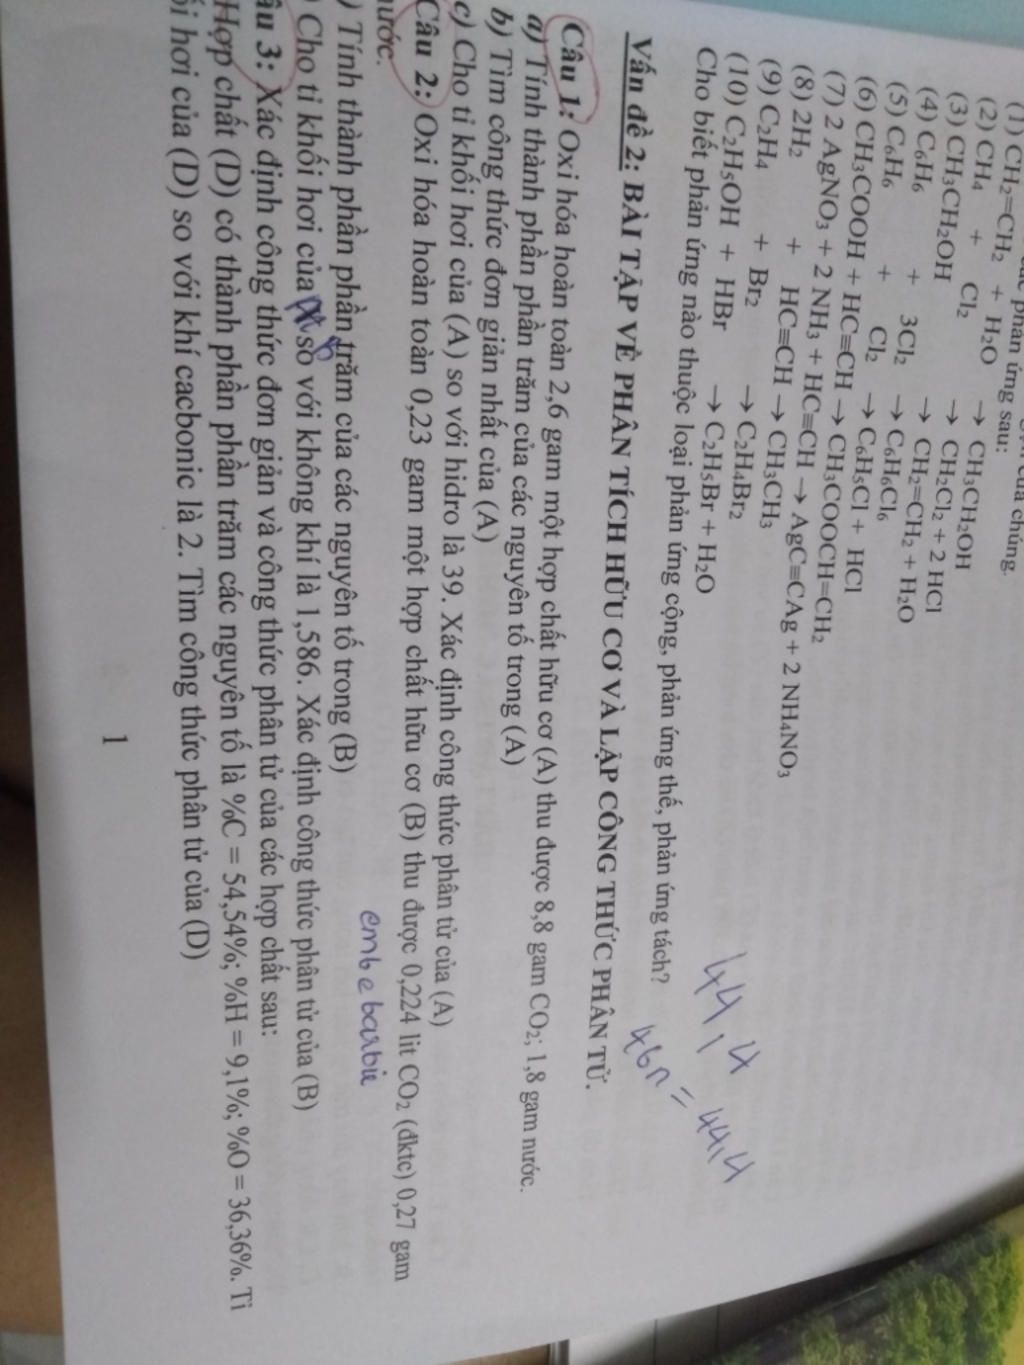 phản ứng sau:
(1) CH₂=CH₂ + H₂O → CH₃CH₂OH
(2) CH₄ + Cl₂ → CH₂Cl₂ + 2 HCl
(3) CH₃CH₂OH → CH₂=CH₂ + H₂O
(4) C₆H₆ + 3Cl₂ → C₆H₆Cl₆
(5) C₆H₆ + Cl₂ → C₆H₅Cl + HCl
(6) CH₃COOH + HC≡CH → CH₃COOCH=CH₂
(7) 2 AgNO₃ + 2 NH₃ + HC≡CH → AgC≡CAg + 2 NH₄NO₃
(8) 2H₂ + HC≡CH → CH₃CH₃
(9) C₂H₄ + Br₂ → C₂H₄Br₂
(10) C₂H₅OH + HBr → C₂H₅Br + H₂O
Cho biết phản ứng nào thuộc loại phản ứng cộng, phản ứng thế, phản ứng tách?
44,4
46n = 44,4
Vấn đề 2: BÀI TẬP VỀ PHÂN TÍCH HỮU CƠ VÀ LẬP CÔNG THỨC PHÂN TỬ.
Câu 1: Oxi hóa hoàn toàn 2,6 gam một hợp chất hữu cơ (A) thu được 8,8 gam CO₂; 1,8 gam nước.
a) Tính thành phần phần trăm của các nguyên tố trong (A)
b) Tìm công thức đơn giản nhất của (A)
c) Cho tỉ khối hơi của (A) so với hidro là 39. Xác định công thức phân tử của (A)
Câu 2: Oxi hóa hoàn toàn 0,23 gam một hợp chất hữu cơ (B) thu được 0,224 lit CO₂ (đktc) 0,27 gam
nước.
) Tính thành phần phần trăm của các nguyên tố trong (B)
em be barbie
) Cho tỉ khối hơi của B so với không khí là 1,586. Xác định công thức phân tử của (B)
âu 3: Xác định công thức đơn giản và công thức phân tử của các hợp chất sau:
Hợp chất (D) có thành phần phần trăm các nguyên tố là %C = 54,54%; %H = 9,1%; %O = 36,36%. Tỉ
ối hơi của (D) so với khí cacbonic là 2. Tìm công thức phân tử của (D)
1